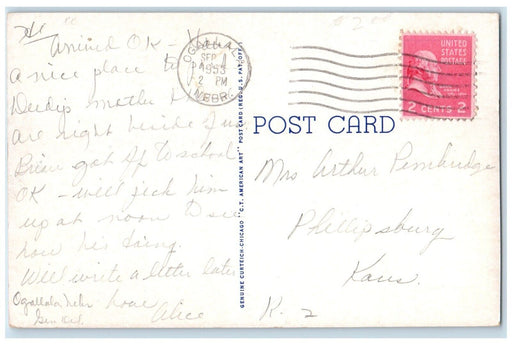 Arrived OK - Have
a nice place to
mother
are right beside of us
Brian got off to school
OK - will pick him
up at noon & see
how his doing.
Will write a letter later
Love
Alice
Ogallala, Nebr
Gen Del.
OGALLALA
SEP 1
1953
2 PM
NEBR.
GENUINE CURTEICH-CHICAGO "C.T. AMERICAN ART" POST CARD (REG. U.S. PAT. OFF.)
UNITED
STATES
POSTAGE
2 CENTS 2
POST CARD
Mrs Arthur Pembridge
Phillipsburg
Kans.
R. 2